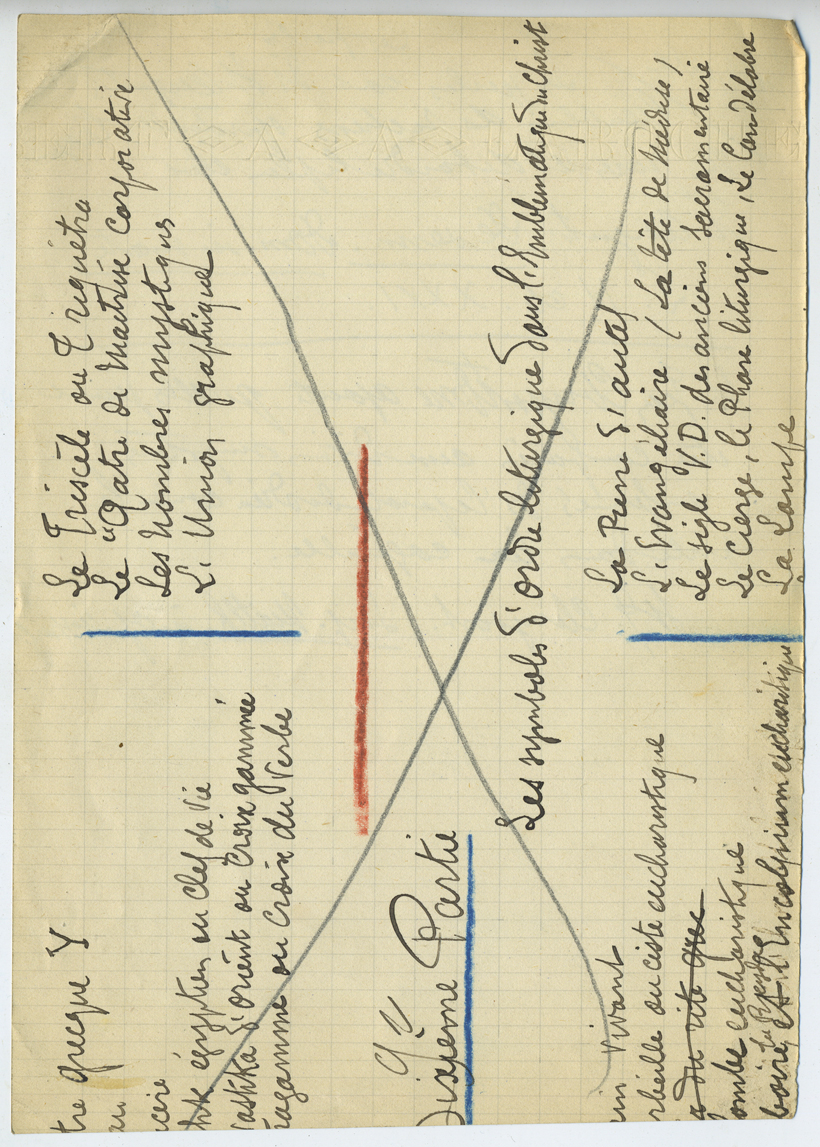 tre grecque Y
égyptien ou Clef de Vie
d'orient ou Croix gammée
ragamme ou Croix du Verbe
Le Triscèle ou Triquètra
Le "Qatre de Maîtrise corporative
Les Nombres mystiques
L'Union graphique
9e
Dixième Partie
Les symboles d'ordre liturgique dans l'Emblématique du Christ
in Vivant
rbeille ou ciste eucharistique
a du rite grec
ombe eucharistique
boire, et l'Encolpium eucharistique
La Pierre d'autel
L'Evangéliaire (La tête de Méduse)
Le sigle V.D. des anciens sacramentaire
Le Cierge, le Phare liturgique, Le Candélabre
La Lampe